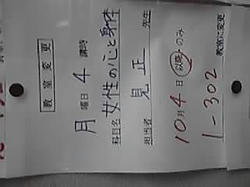 教室変更
月曜日 4 講時
科目名 女性の心と身体
担当者 見正 先生
10月4日(以降)のみ
1-302
教室に変更